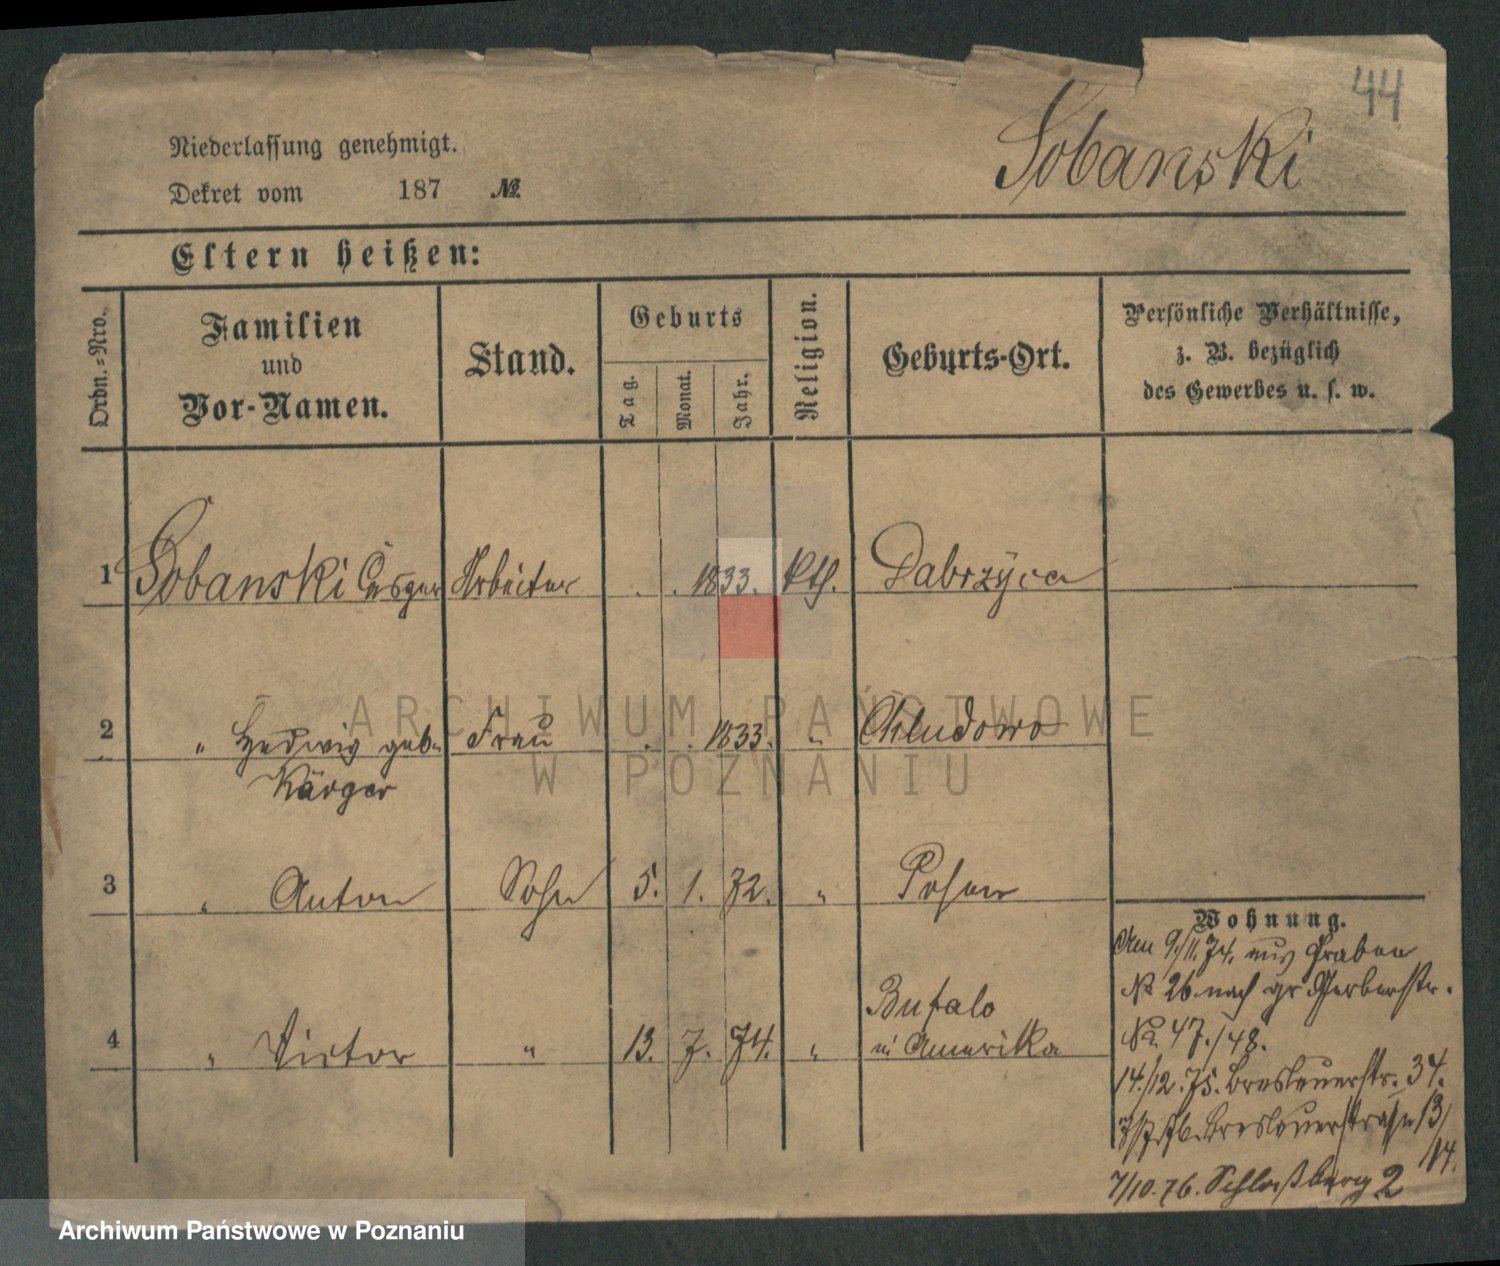 44
Niederlassung genehmigt.
Sobanski
Dekret vom 187 №
Eltern heißen:
Ordn.-Nro.
Familien
und
Vor-Namen.
Stand.
Geburts
Tag.
Monat.
Jahr.
Religion.
Geburts-Ort.
Persönliche Verhältnisse,
z. B. bezüglich
des Gewerbes u. s. w.
1 Sobanski Casper Arbeiter . . 1833. kth. Dabrzyca
2 " Hedwig geb. Frau . . 1833. " Chludowo
Kärger
3 " Anton Sohn 5. 1. 72. " Posen
4 " Victor " 13. 7. 74. " Bufalo
in Amerika
Wohnung.
Am 9./11. 74. aus Graben
№ 26 nach gr Gerberstr.
№. 47./48.
14./12. 75. Breslauerstr. 34.
Breslauerstraße 13/
14.
7/10. 76. Schloßberg 2
ARCHIWUM PAŃSTWOWE
W POZNANIU
Archiwum Państwowe w Poznaniu